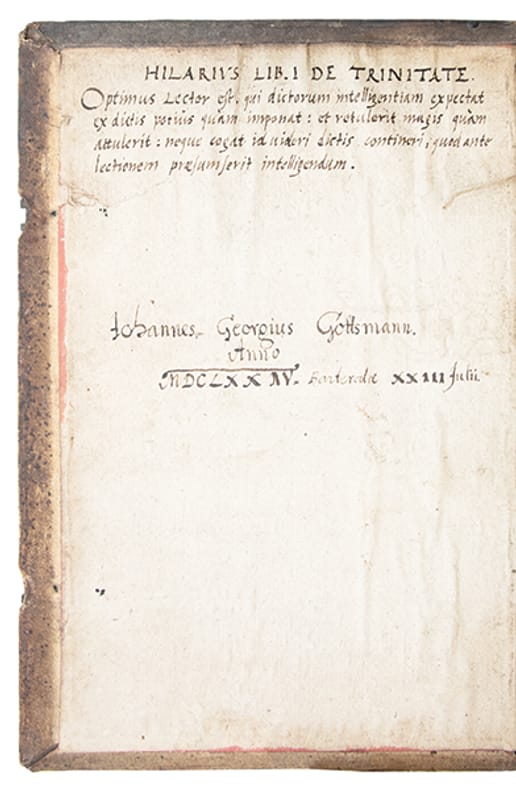 HILARIVS LIB. I DE TRINITATE.
Optimus Lector est, qui dictorum intelligentiam expectat
ex dictis potius quàm imponat: et retulerit magis quàm
attulerit: neque cogat id uideri dictis contineri, quod ante
lectionem præsumserit intelligendum.
Johannes Georgius Gottsmann.
Anno
MDCLXXIV. XXIII Julii.